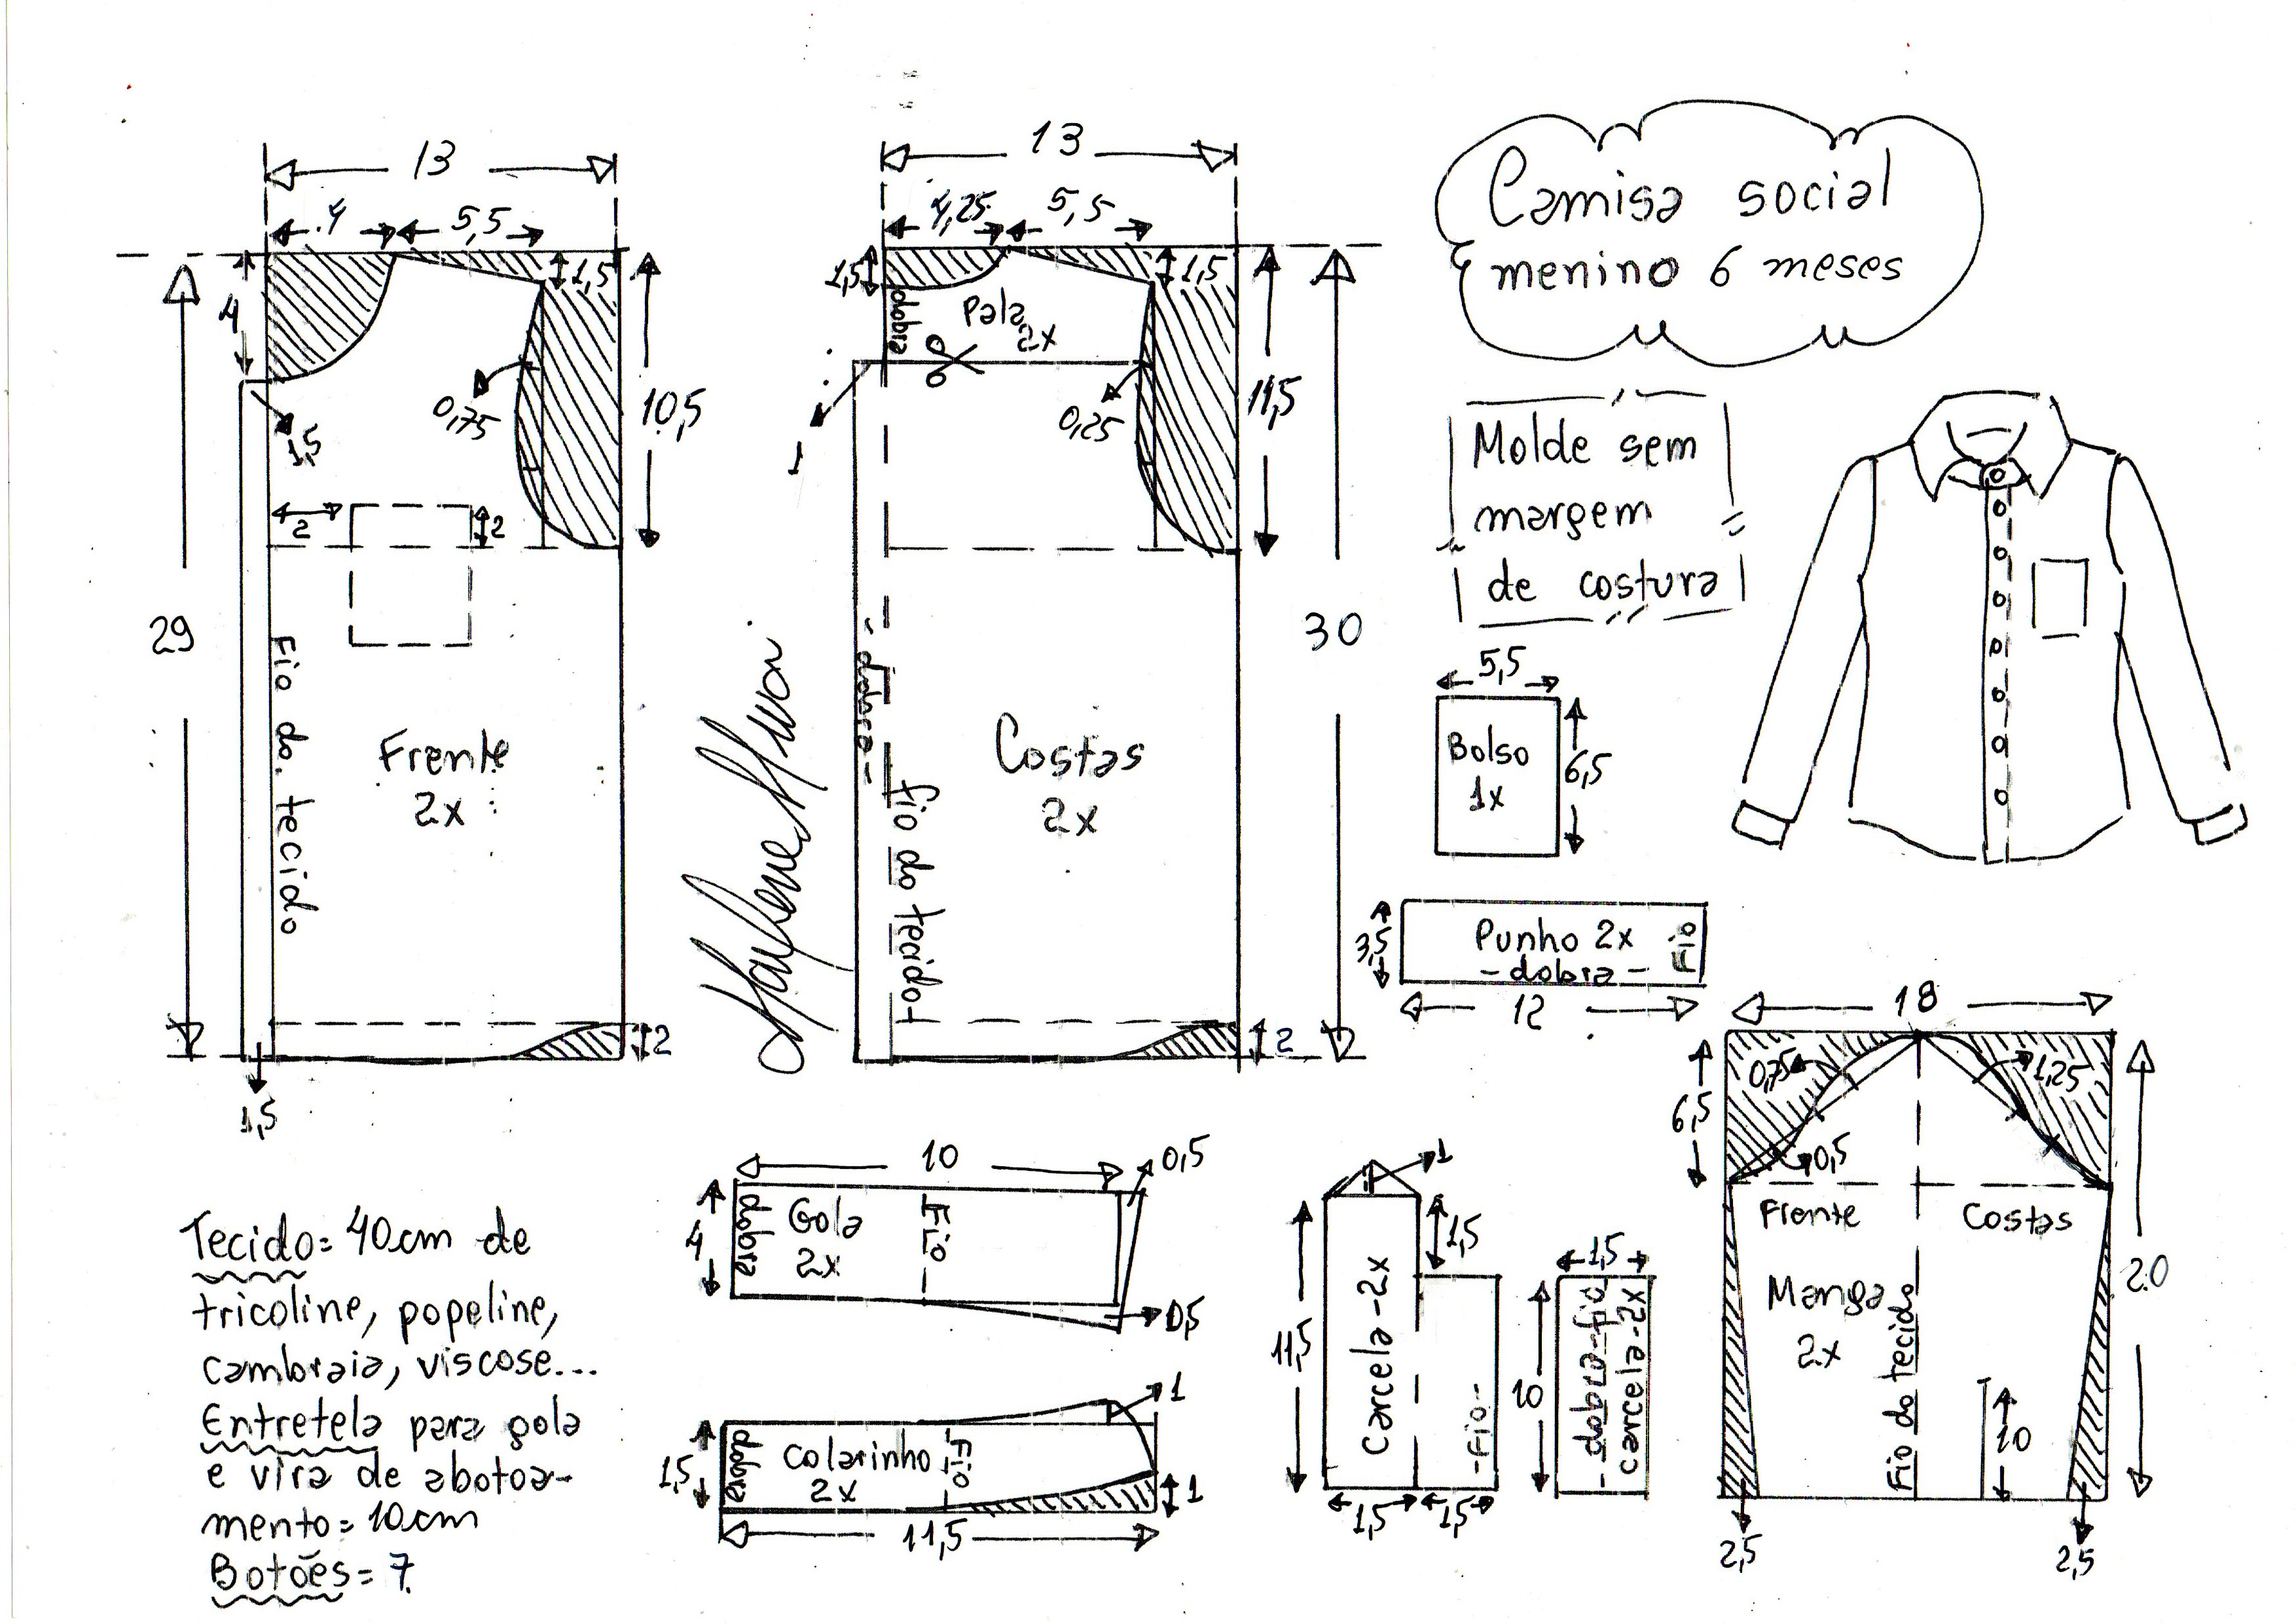 13
4
5,5
1,5
4
10,5
0,75
1,5
2
2
29
Fio do tecido
Frente
2x
2
1,5
13
4,25
5,5
1,5
1,5
dobra
Pala
2x
11,5
0,25
1
30
- dobra -
fio do tecido
Costas
2x
2
Camisa social
menino 6 meses
Molde sem
margem
de costura
5,5
Bolso
1x
6,5
3,5
Punho 2x
- dobra -
Fio
12
18
0,75
1,25
6,5
0,5
Frente
Costas
Manga
2x
Fio do tecido
20
10
2,5
2,5
10
0,5
4
dobra
Gola
2x
Fio
0,5
1
1,5
dobra
Colarinho
2x
Fio
1
11,5
1
1,5
11,5
Carcela-2x
-Fio-
1,5
1,5
1,5
10
- dobra-fio
carcela-2x
Tecido= 40cm de
tricoline, popeline,
cambraia, viscose...
Entretela para gola
e vira de abotoa-
mento= 10cm
Botões= 7